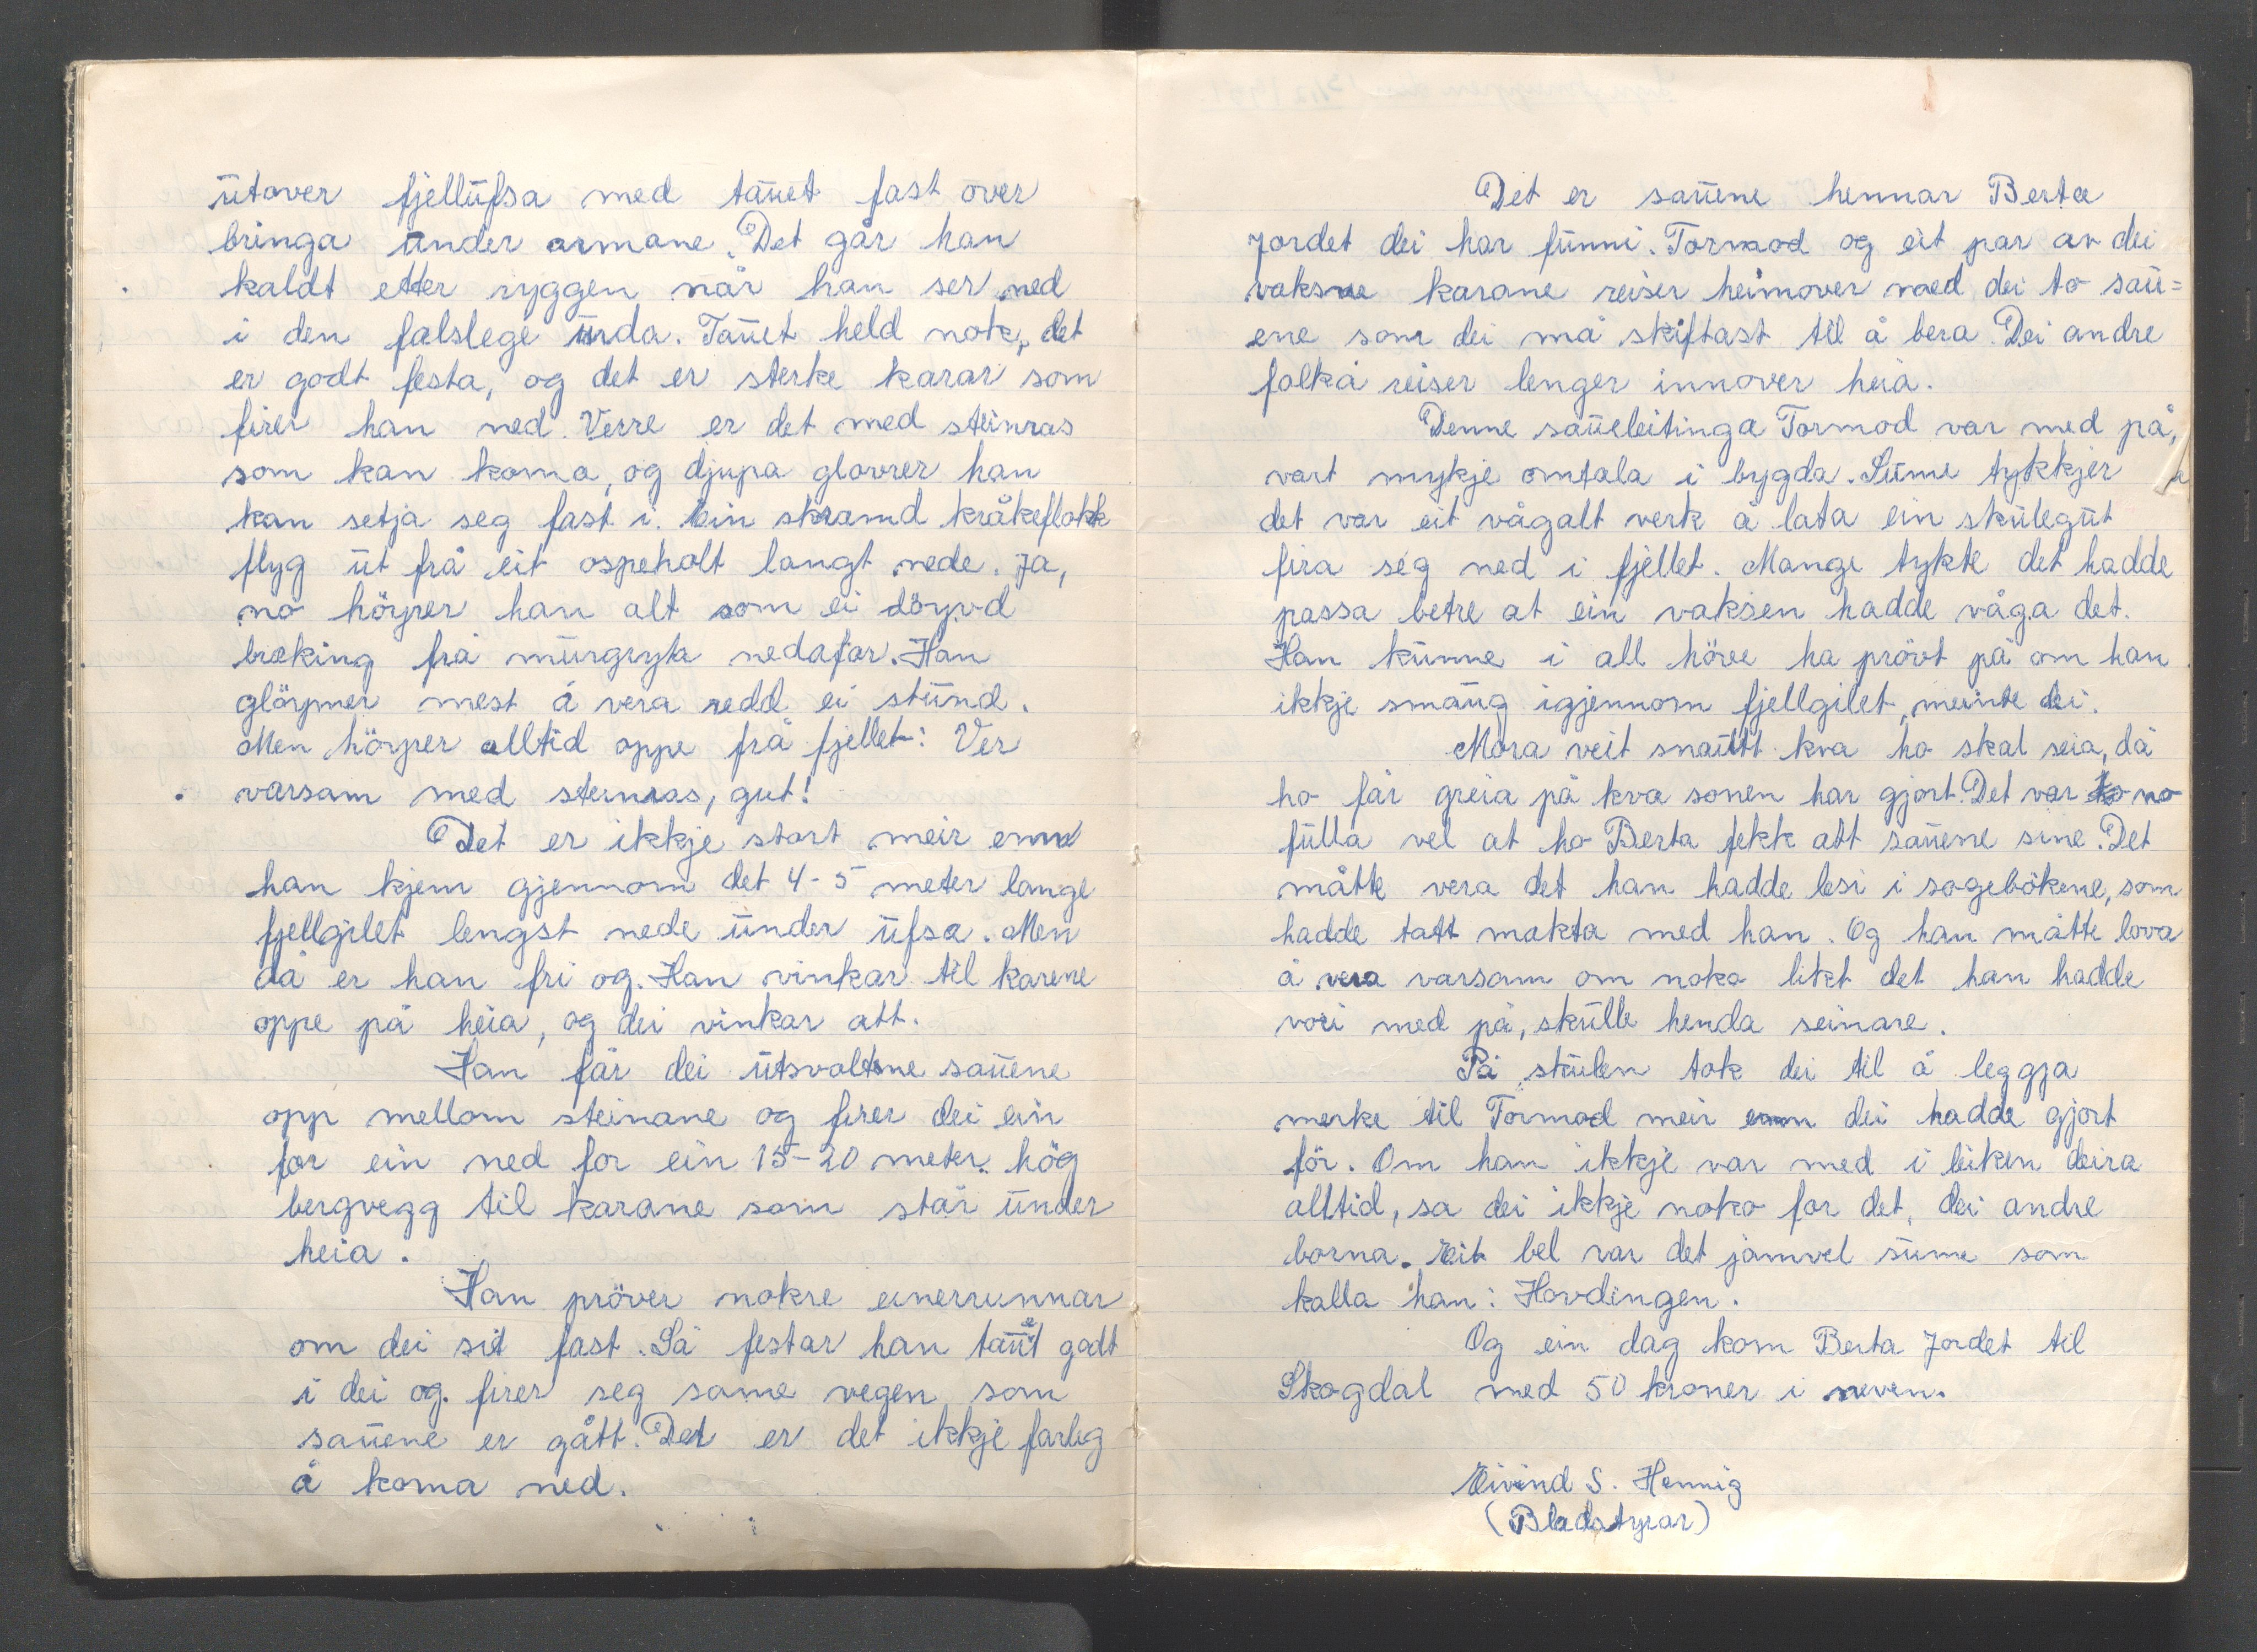 utover fjellufsa med tauet fast over
bringa under armane. Det går han
kaldt etter ryggen når han ser ned
i den falslege urda. Tauet held nok, det
er godt festa, og det er sterke karar som
firer han ned. Verre er det med steinras
som kan koma, og djupa glovrer han
kan setja seg fast i. Ein skramd kråkeflokk
flyg ut frå eit ospeholt langt nede. Ja,
no höyrer han alt som ei döyvd
bræking frå murgryta nedafor. Han
glöymer mest å vera redd ei stund.
Men höyrer alltid oppe frå fjellet: Ver
varsam med steinras, gut!
Det er ikkje stort meir enn
han kjem gjennom det 4-5 meter lange
fjellgilet lengst nede under ufsa. Men
då er han fri og. Han vinkar til karene
oppe på heia, og dei vinkar att.
Han får dei utsvoltne sauene
opp mellom steinane og firer dei ein
for ein ned for ein 15-20 meter hög
bergvegg til karane som står under
heia.
Han pröver nokre einerrunnar
om dei sit fast. Så festar han tauet godt
i dei og firer seg same vegen som
sauene er gått. Der er det ikkje farleg
å koma ned.
Det er sauene hennar Berta
Jordet dei har funni. Tormod og eit par av dei
vaksne karane reiser heimover med dei to sau=
ene som dei må skiftast til å bera. Dei andre
folka reiser lenger innover heia.
Denne saueleitinga Tormod var med på,
vart mykje omtala i bygda. Sume tykkjer
det var eit vågalt verk å lata ein skulegut
fira seg ned i fjellet. Mange tykte det hadde
passa betre at ein vaksen hadde våga det.
Han kunne i all höve ha prövt på om han
ikkje smaug igjennom fjellgilet, meinte dei.
Mora veit snautt kva ho skal seia, då
ho får greia på kva sonen har gjort. Det var no
fulla vel at ho Berta fekk att sauene sine. Det
måtte vera det han hadde lesi i sogebökene, som
hadde tatt makta med han. Og han måtte lova
å vera varsam om noko likt det han hadde
vori med på, skulle henda seinare.
På skulen tok dei til å leggja
merke til Tormod meir enn dei hadde gjort
för. Om han ikkje var med i leiken deira
alltid, sa dei ikkje noko for det, dei andre
borna. Eit bel var det jamvel sume som
kalla han: Hovdingen.
Og ein dag kom Berta Jordet til
Skogdal med 50 kroner i neven.
Eivind S. Hennig
(Bladstyrar)